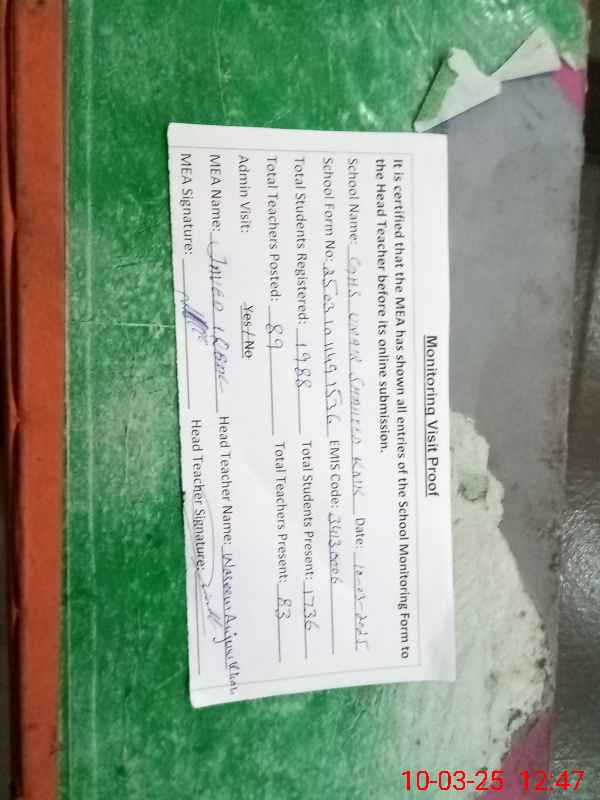 Monitoring Visit Proof
It is certified that the MEA has shown all entries of the School Monitoring Form to
the Head Teacher before its online submission.
School Name: GGHS UMAR SHAHEED Date: 10-03-2025
School Form No: EMIS Code: 34130006
Total Students Registered: 1988 Total Students Present: 1736
Total Teachers Posted: 89 Total Teachers Present: 83
Admin Visit: Yes / No
MEA Name: JAVED IQBAL Head Teacher Name: Waseem Anjum Khan
MEA Signature: Head Teacher Signature:
10-03-25 12:47